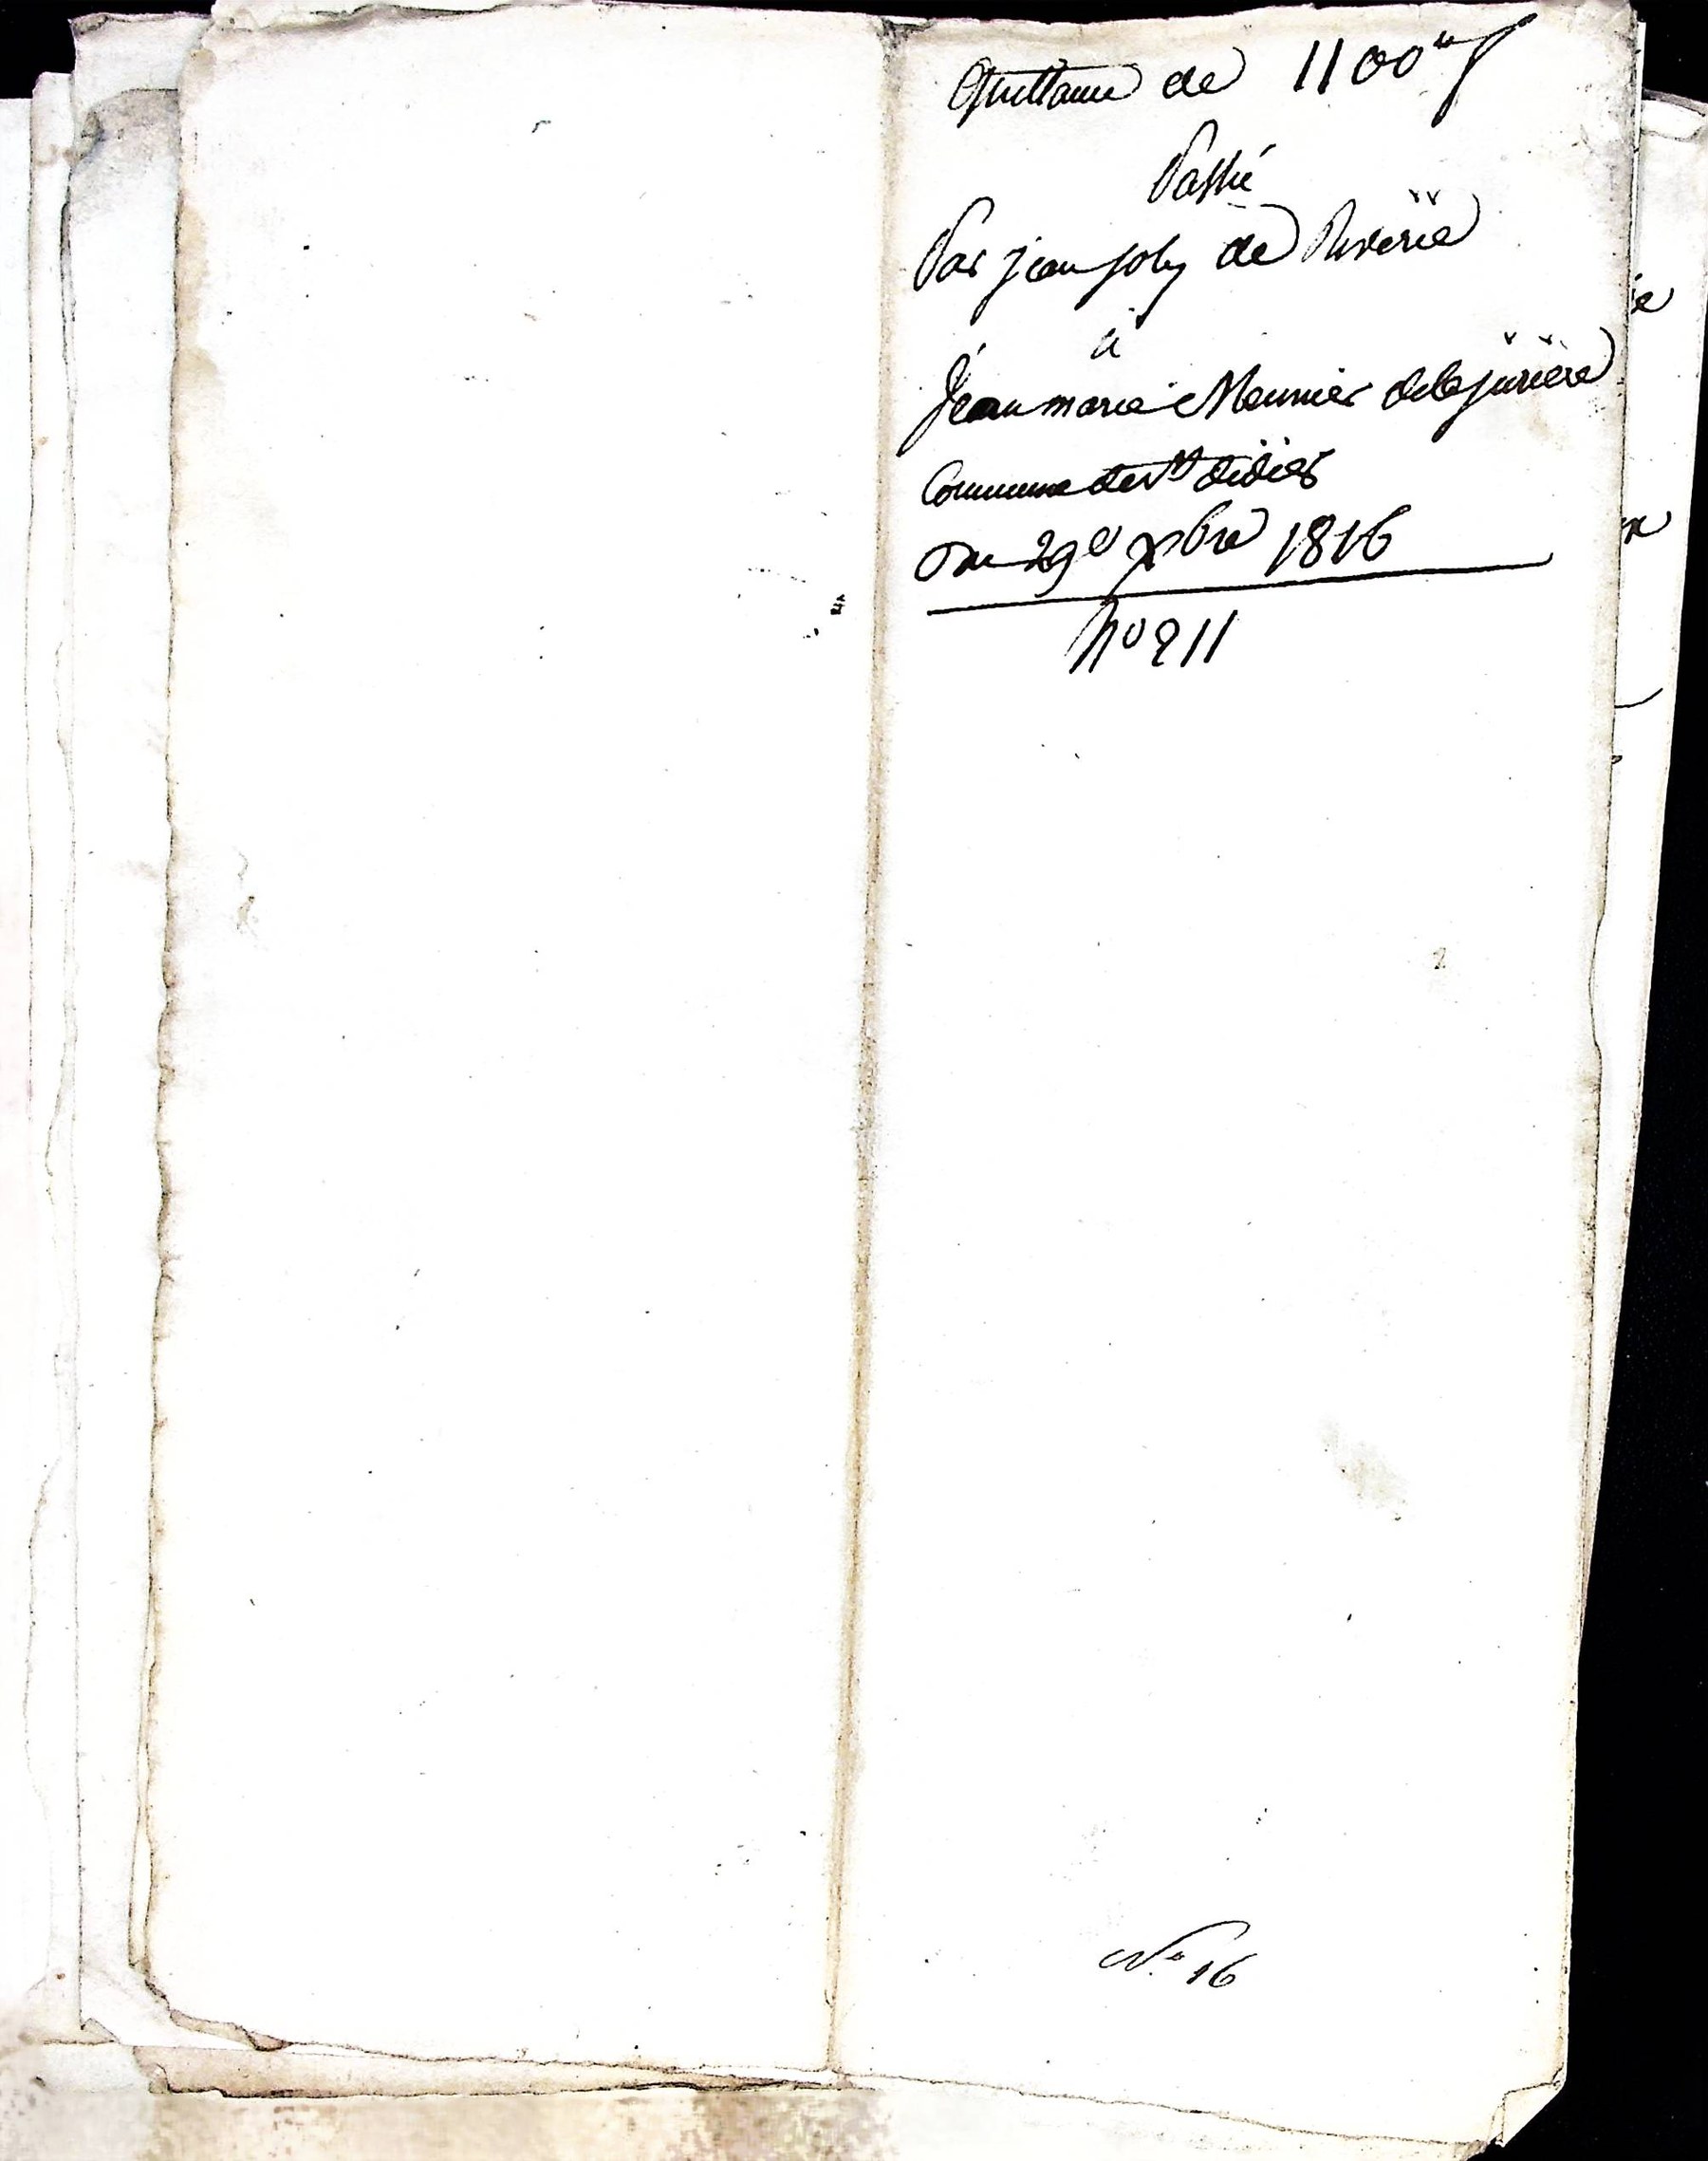 Quittance de 1100 tt
Passé
Par jean joly de Riverie
à
Jean marie Meunier de la jurière
Commune de st didier
Du 29e xbre 1816
No 211
No. 16